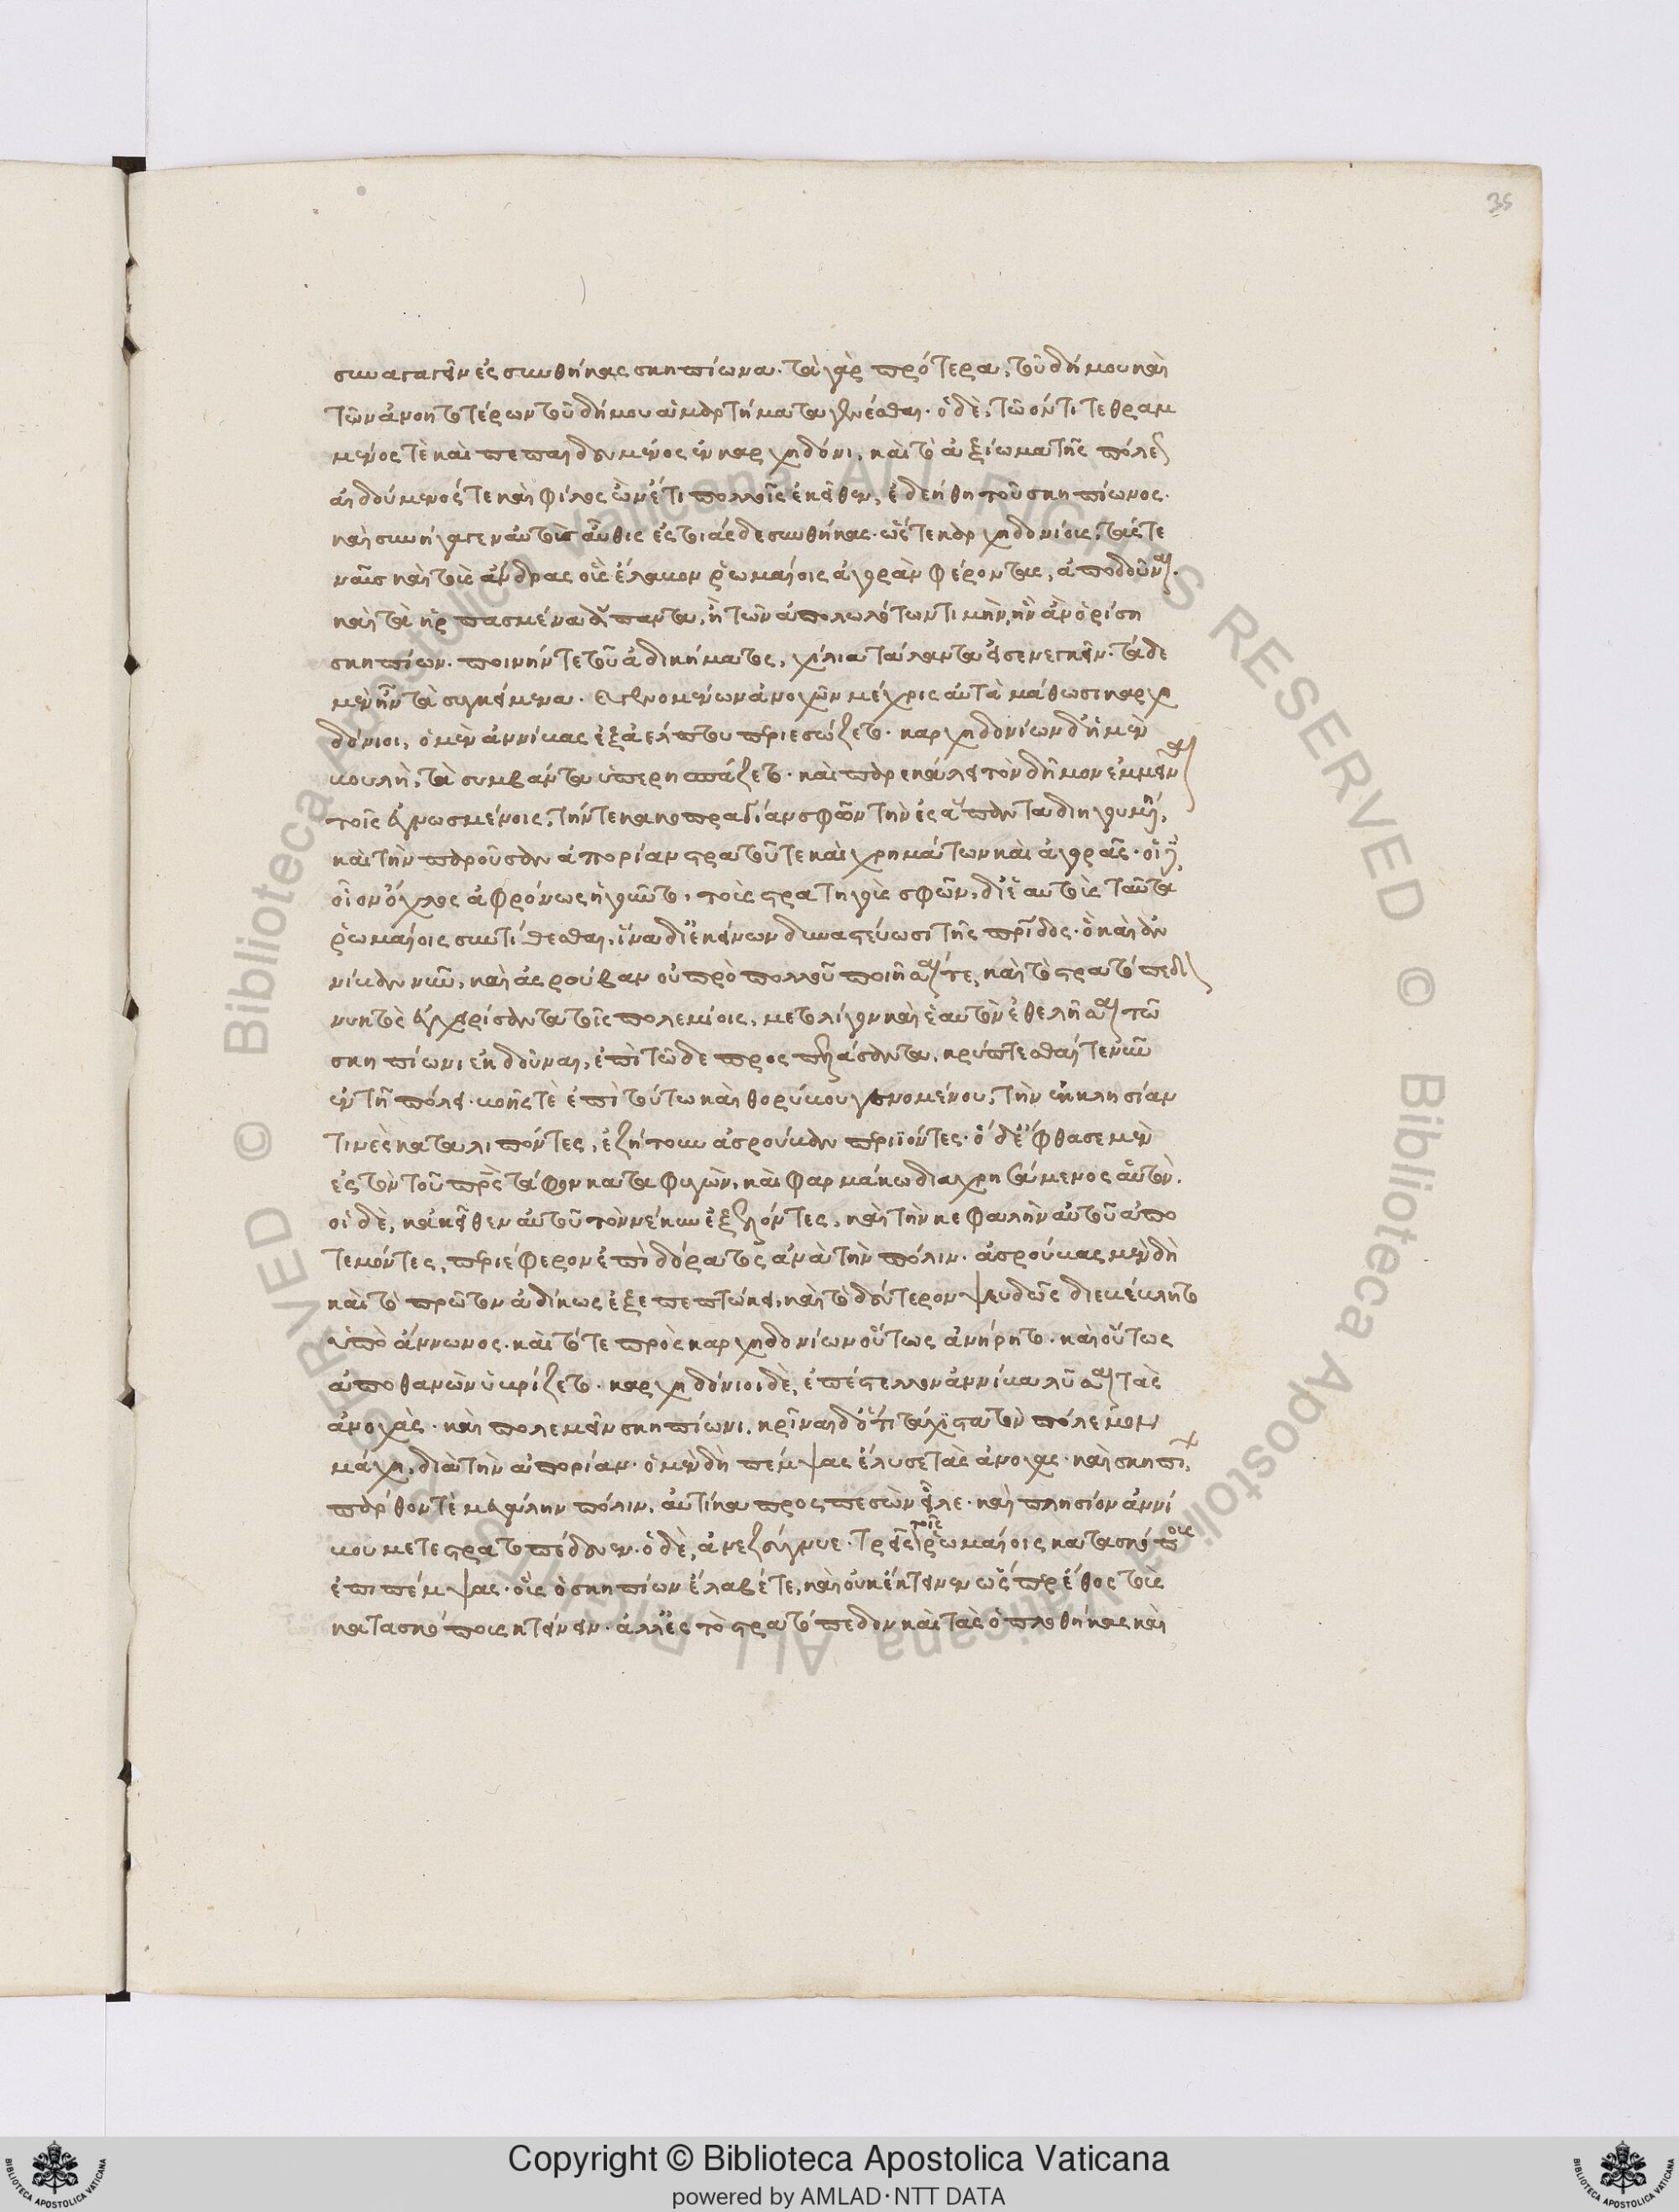 35
συναγαγεῖν ἐς συνθήκας σκηπίωνα. τὰ γὰρ πρότερα, τοῦ δήμου καὶ
τῶν ἀνοητοτέρων τοῦ δήμου ἁμαρτήματα γενέσθαι. ὁ δὲ, τῶ ὄντι τεθραμ
μένος τὲ καὶ πεπαιδευμένος ἐν καρχηδόνι, καὶ τὸ ἀξίωμα τῆς πόλεως
αἰδούμενός τε καὶ φίλος ὢν ἔτι πολλοῖς ἐκεῖθεν, ἐδεήθη τοῦ σκηπίωνος.
καὶ συνήγαγεν αὐτοὺς αὖθις ἐς τοιάσδε συνθήκας. ὥστε καρχηδονίοις, τάς τε
ναῦς καὶ τοὺς ἄνδρας οὓς ἔλαβον ῥωμαίοις ἀγορὰν φέροντας, ἀποδοῦναι.
καὶ τὰ ἡρπασμένα ἅπαντα, ἢ τῶν ἀπολωλότων τιμὴν, ἣν ἂν ὁρίση
σκηπίων. ποινήν τε τοῦ ἀδικήματος, χίλια τάλαντα ἐσενεγκεῖν. τάδε
μὲν ἦν τὰ συγκείμενα. καὶ γενομένων ἀνοχῶν μέχρις αὐτὰ μάθωσι καρχη
δόνιοι, ὁ μὲν ἀννίβας ἐξ ἀέλπτου περιεσώζετο. καρχηδονίων δ' ἡ μὲν
βουλὴ, τὰ συμβάντα ὑπερησπάζετο. καὶ παρεκάλει τὸν δῆμον ἐμμεῖναι
τοῖς ἐγνωσμένοις, τήν τε κακοπραγίαν σφῶν τὴν ἐς ἅπαντα διηγουμένη,
καὶ τὴν παροῦσαν ἀπορίαν στρατοῦ τε καὶ χρημάτων καὶ ἀγορᾶς. οἱ δ',
οἷον ὄχλος ἀφρόνως ἡγοῦντο, τοὺς στρατηγοὺς σφῶν, δι' ἑαυτοὺς ταῦτα
ῥωμαίοις συντίθεσθαι, ἵνα δι' ἐκείνων δυναστεύωσι τῆς πατρίδος. ὃ καὶ ἀν
νίβαν νῦν, καὶ ἀσρούβαν οὐ πρὸ πολλοῦ ποιῆσαί τε, καὶ τὸ στρατόπεδον
νυκτὸς ἐγχειρίσαντα τοῖς πολεμίοις, μετ' ὀλίγον καὶ ἑαυτὸν ἐθελῆσαι τῶ
σκηπίωνι ἐκδοῦναι, ἐπὶ τῶδε προσπελάσαντα. κρύπτεσθαί τε νῦν
ἐν τῆ πόλει. βοῆς τὲ ἐπὶ τούτω καὶ θορύβου γενομένου, τὴν ἐκκλησίαν
τινὲς καταλιπόντες, ἐζήτουν ἀσρούβαν περιϊόντες. ὁ δ' ἔφθασε μὲν
ἐς τὸν τοῦ πατρὸς τάφον καταφυγὼν, καὶ φαρμάκω διαχρησάμενος αὑτὸν.
οἱ δὲ, κἀκεῖθεν αὐτοῦ τὸν νέκυν ἐξελόντες, καὶ τὴν κεφαλὴν αὐτοῦ ἀπο
τεμόντες, περιέφερον ἐπὶ δόρατος ἀνὰ τὴν πόλιν. ἀσρούβας μὲν δὴ
καὶ τὸ πρῶτον ἀδίκως ἐξεπεπτώκει, καὶ τὸ δεύτερον ψευδῶς διεβέβλητο
ὑπὸ ἄννωνος. καὶ τότε πρὸς καρχηδονίων οὕτως ἀνήρητο. καὶ οὕτως
ἀποθανὼν ὑβρίζετο. καρχηδόνιοι δὲ, ἐπέστελλον ἀννίβα λῦσαι τὰς
ἀνοχὰς. καὶ πολεμεῖν σκηπίωνι. κρῖναι δ' ὅτι τάχιστα τὸν πόλεμον
μάχη, διὰ τὴν ἀπορίαν. ὁ μὲν δὴ πέμψας ἔλυσε τὰς ἀνοχὰς. καὶ σκηπίων,
πάρθον τὲ μεγάλην πόλιν, αὐτίκα προσπεσὼν εἷλε. καὶ πλησίον ἀννί
βου μετεστρατοπέδευεν. ὁ δὲ, ἀνεζεύγνυε. τρεῖς τοῖς ῥωμαίοις κατασκόπους
ἐπιπέμψας. οὓς ὁ σκηπίων ἔλαβέ τε, καὶ οὐκ ἔκτεινεν ὥσπερ ἔθος τοὺς
κατασκόπους κτείνειν. ἀλλ' ἐς τὸ στρατόπεδον καὶ τὰς ὁπλοθήκας καὶ
© Biblioteca Apostolica Vaticana ALL RIGHTS RESERVED © Biblioteca Apostolica Vaticana ALL RIGHTS RESERVED
Copyright © Biblioteca Apostolica Vaticana
powered by AMLAD·NTT DATA
BIBLIOTECA APOSTOLICA VATICANA
BIBLIOTECA APOSTOLICA VATICANA